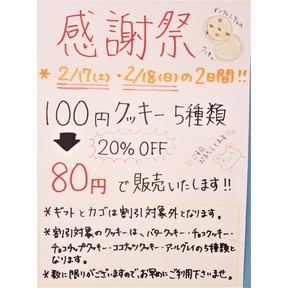 感謝祭
インフィニティの
クッキー
* 2/17(土)・2/18(日)の2日間!!
100円クッキー 5種類
20% OFF
80円で販売いたします!!
*ギフトとカゴは割引対象外となります。
*割引対象のクッキーは、バタークッキー・チョコクッキー・
チョコチップクッキー・ココナッツクッキー・アールグレイの5種類と
なります。
*数に限りがございますので、お早めにご利用下さいませ。